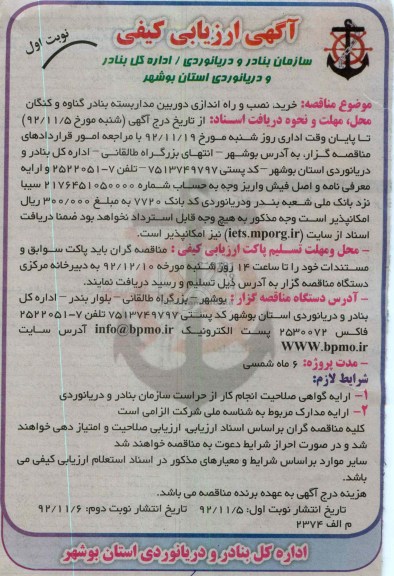 آگهی ارزیابی کیفی
نوبت اول
سازمان بنادر و دریانوردی / اداره کل بنادر
و دریانوردی استان بوشهر
موضوع مناقصه: خرید، نصب و راه اندازی دوربین مداربسته بنادر گناوه و کنگان
محل، مهلت و نحوه دریافت اسناد: از تاریخ درج آگهی (شنبه مورخ ۹۲/۱۱/۵)
تا پایان وقت اداری روز شنبه مورخ ۹۲/۱۱/۱۹ با مراجعه امور قراردادهای
مناقصه گزار، به آدرس بوشهر – انتهای بزرگراه طالقانی – اداره کل بنادر و
دریانوردی استان بوشهر – کد پستی ۷۵۱۳۷۴۹۷۹۷ – تلفن ۷-۲۵۲۲۰۵۱ و ارایه
معرفی نامه و اصل فیش واریز وجه به حساب شماره ۲۱۷۶۴۵۱۰۵۰۰۰۰ سیبا
نزد بانک ملی شعبه بندر ودریانوردی کد بانک ۷۷۲۰ به مبلغ ۳۰۰/۰۰۰ ریال
امکانپذیر است وجه مذکور به هیچ وجه قابل استرداد نخواهد بود ضمنا دریافت
اسناد از سایت (iets.mporg.ir) نیز امکانپذیر است.
– محل ومهلت تسلیم پاکت ارزیابی کیفی : مناقصه گران باید پاکت سوابق و
مستندات خود را تا ساعت ۱۴ روز شنبه مورخه ۹۲/۱۲/۱۰ به دبیرخانه مرکزی
دستگاه مناقصه گزار به آدرس ذیل تسلیم و رسید دریافت نمایند.
– آدرس دستگاه مناقصه گزار : بوشهر – بزرگراه طالقانی – بلوار بندر – اداره کل
بنادر و دریانوردی استان بوشهر کد پستی ۷۵۱۳۷۴۹۷۹۷ تلفن ۷-۲۵۲۲۰۵۱
فاکس ۲۵۳۰۰۷۲ پست الکترونیک info@bpmo.ir آدرس سایت
WWW.bpmo.ir
– مدت پروژه: ۶ ماه شمسی
شرایط لازم:
۱- ارایه گواهی صلاحیت انجام کار از حراست سازمان بنادر و دریانوردی
۲- ارایه مدارک مربوط به شناسه ملی شرکت الزامی است
کلیه مناقصه گران براساس اسناد ارزیابی، ارزیابی صلاحیت و امتیاز دهی خواهند
شد و در صورت احراز شرایط دعوت به مناقصه خواهند شد
سایر موارد براساس شرایط و معیارهای مذکور در اسناد استعلام ارزیابی کیفی می
باشد.
هزینه درج آگهی به عهده برنده مناقصه می باشد.
تاریخ انتشار نوبت اول: ۹۲/۱۱/۵ تاریخ انتشار نوبت دوم: ۹۲/۱۱/۶
م الف ۲۳۷۴
اداره کل بنادر و دریانوردی استان بوشهر